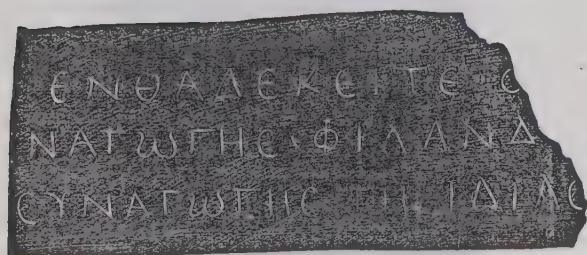 ΕΝΘΑΔΕΚΕΙΤΕ C
ΝΑΓΩΓΗC·ΦΙΛΑΝΔ
CΥΝΑΓΩΓΗC ΤΗ ΙΔΙΛC